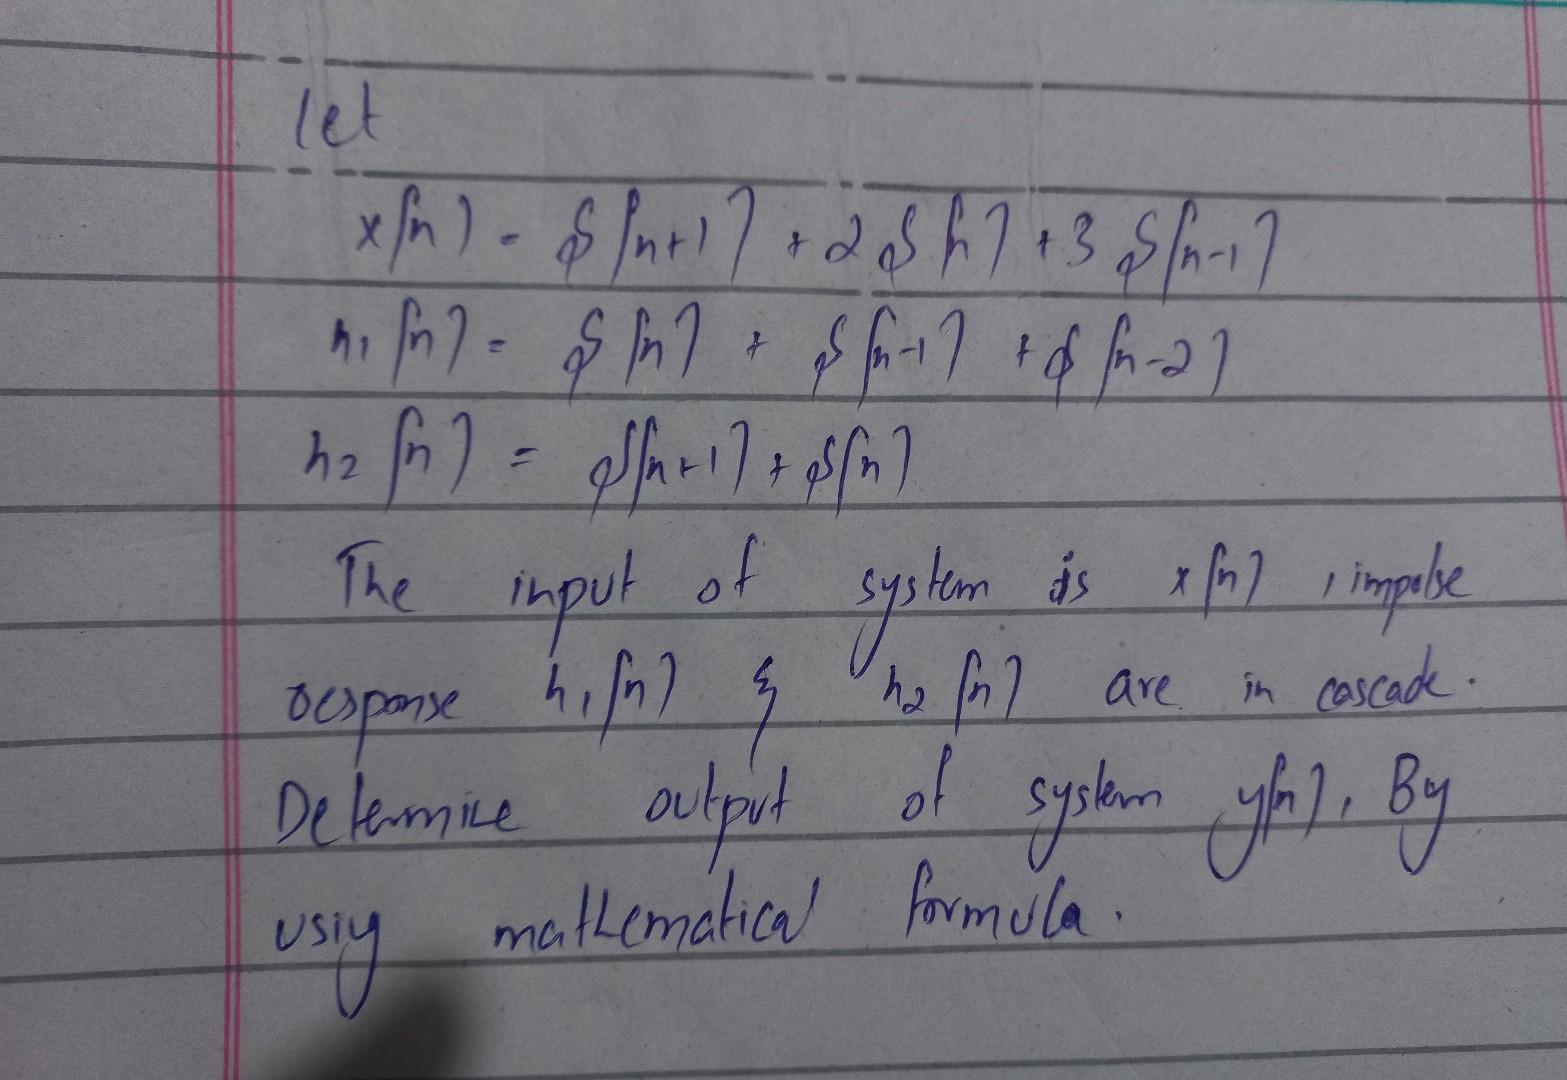 let
x[n] = δ[n+1] + 2δ[n] + 3δ[n-1]
h₁[n] = δ[n] + δ[n-1] + δ[n-2]
h₂[n] = δ[n+1] + δ[n]
The input of system is x[n], impulse
response h₁[n] & h₂[n] are in cascade.
Determine output of system y[n]. By
using mathematical formula.